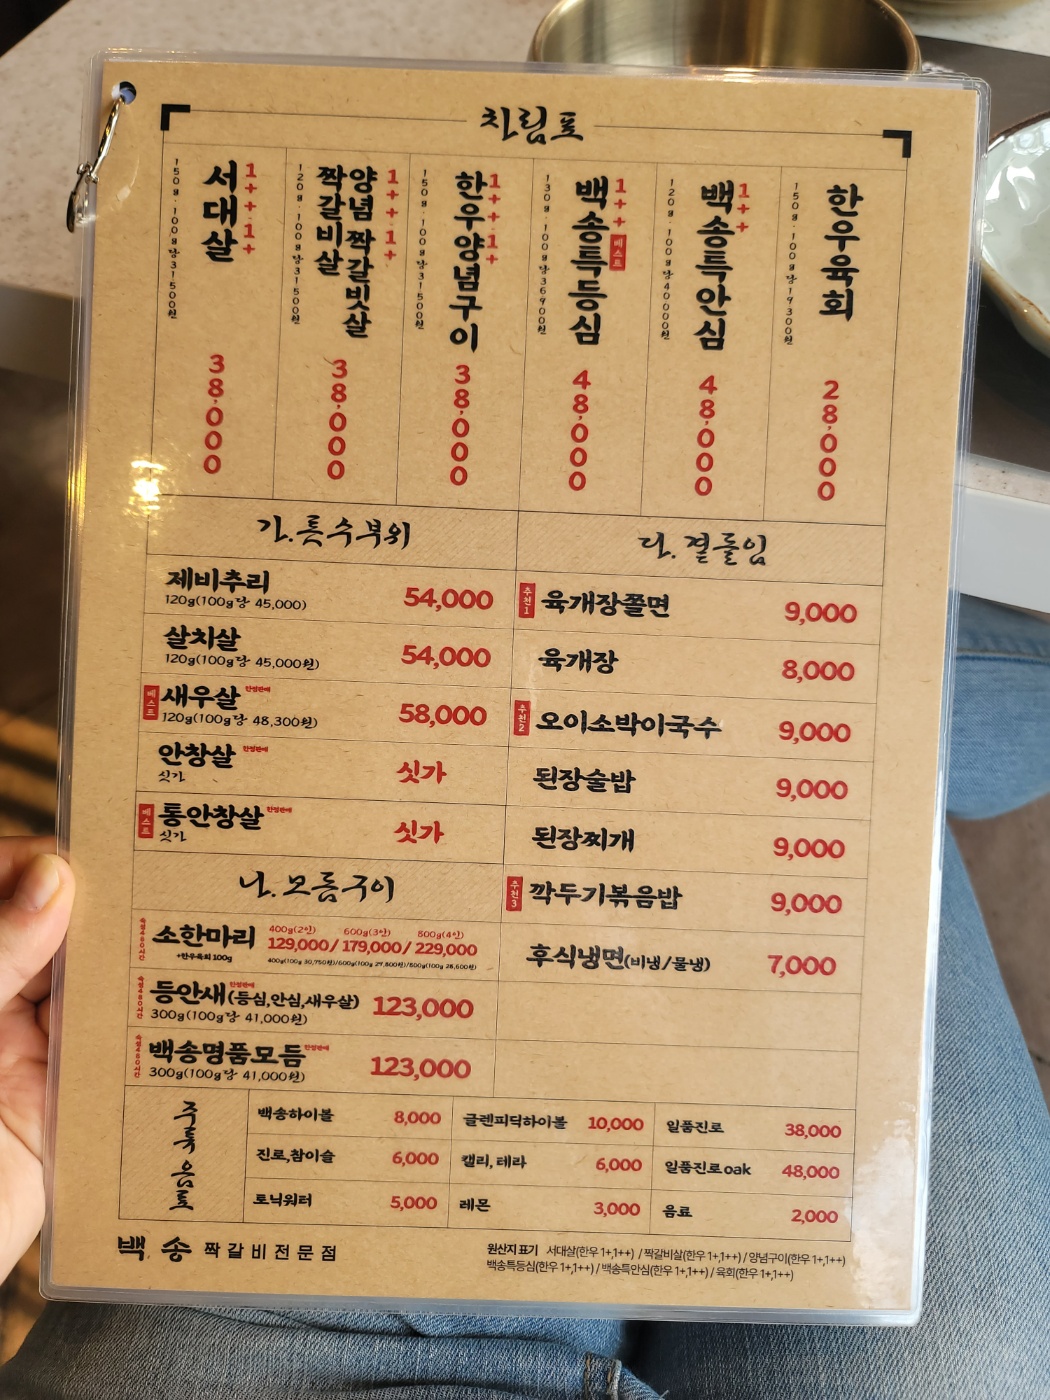 차림표
서대살
1++·1+
150g·100g당31500원
38,000
양념 짝갈빗살
짝갈비살
1++·1+
120g·100g당31500원
38,000
한우양념구이
1++·1+
150g·100g당31500원
38,000
백송특등심
1++
베스트
130g·100g당36900원
48,000
백송특안심
1++
120g·100g당40000원
48,000
한우육회
150g·100g당19300원
28,000
가.특수부위
제비추리 54,000
120g(100g당 45,000)
살치살 54,000
120g(100g당 45,000원)
베스트 새우살 한정판매 58,000
120g(100g당 48,300원)
안창살 한정판매 싯가
싯가
베스트 통안창살 한정판매 싯가
싯가
나.모듬구이
숙성480시간
소한마리 400g(2인) 600g(3인) 800g(4인)
129,000/179,000/229,000
+한우육회 100g 400g(100g 30,750원)/600g(100g 29,800원)/800g(100g 28,600원)
숙성480시간
등안새(등심,안심,새우살) 한정판매 123,000
300g(100g당 41,000원)
숙성480시간
백송명품모듬 한정판매 123,000
300g(100g당 41,000원)
다.곁들임
추천1 육개장쫄면 9,000
육개장 8,000
추천2 오이소박이국수 9,000
된장술밥 9,000
된장찌개 9,000
추천3 깍두기볶음밥 9,000
후식냉면(비냉/물냉) 7,000
주류 음료
백송하이볼 8,000 글렌피딕하이볼 10,000 일품진로 38,000
진로,참이슬 6,000 캘리, 테라 6,000 일품진로oak 48,000
토닉워터 5,000 레몬 3,000 음료 2,000
백송 짝갈비전문점
원산지 표기 서대살(한우 1+,1++) / 짝갈비살(한우 1+,1++) / 양념구이(한우 1+,1++)
백송특등심(한우 1+,1++) / 백송특안심(한우 1+,1++) / 육회(한우 1+,1++)